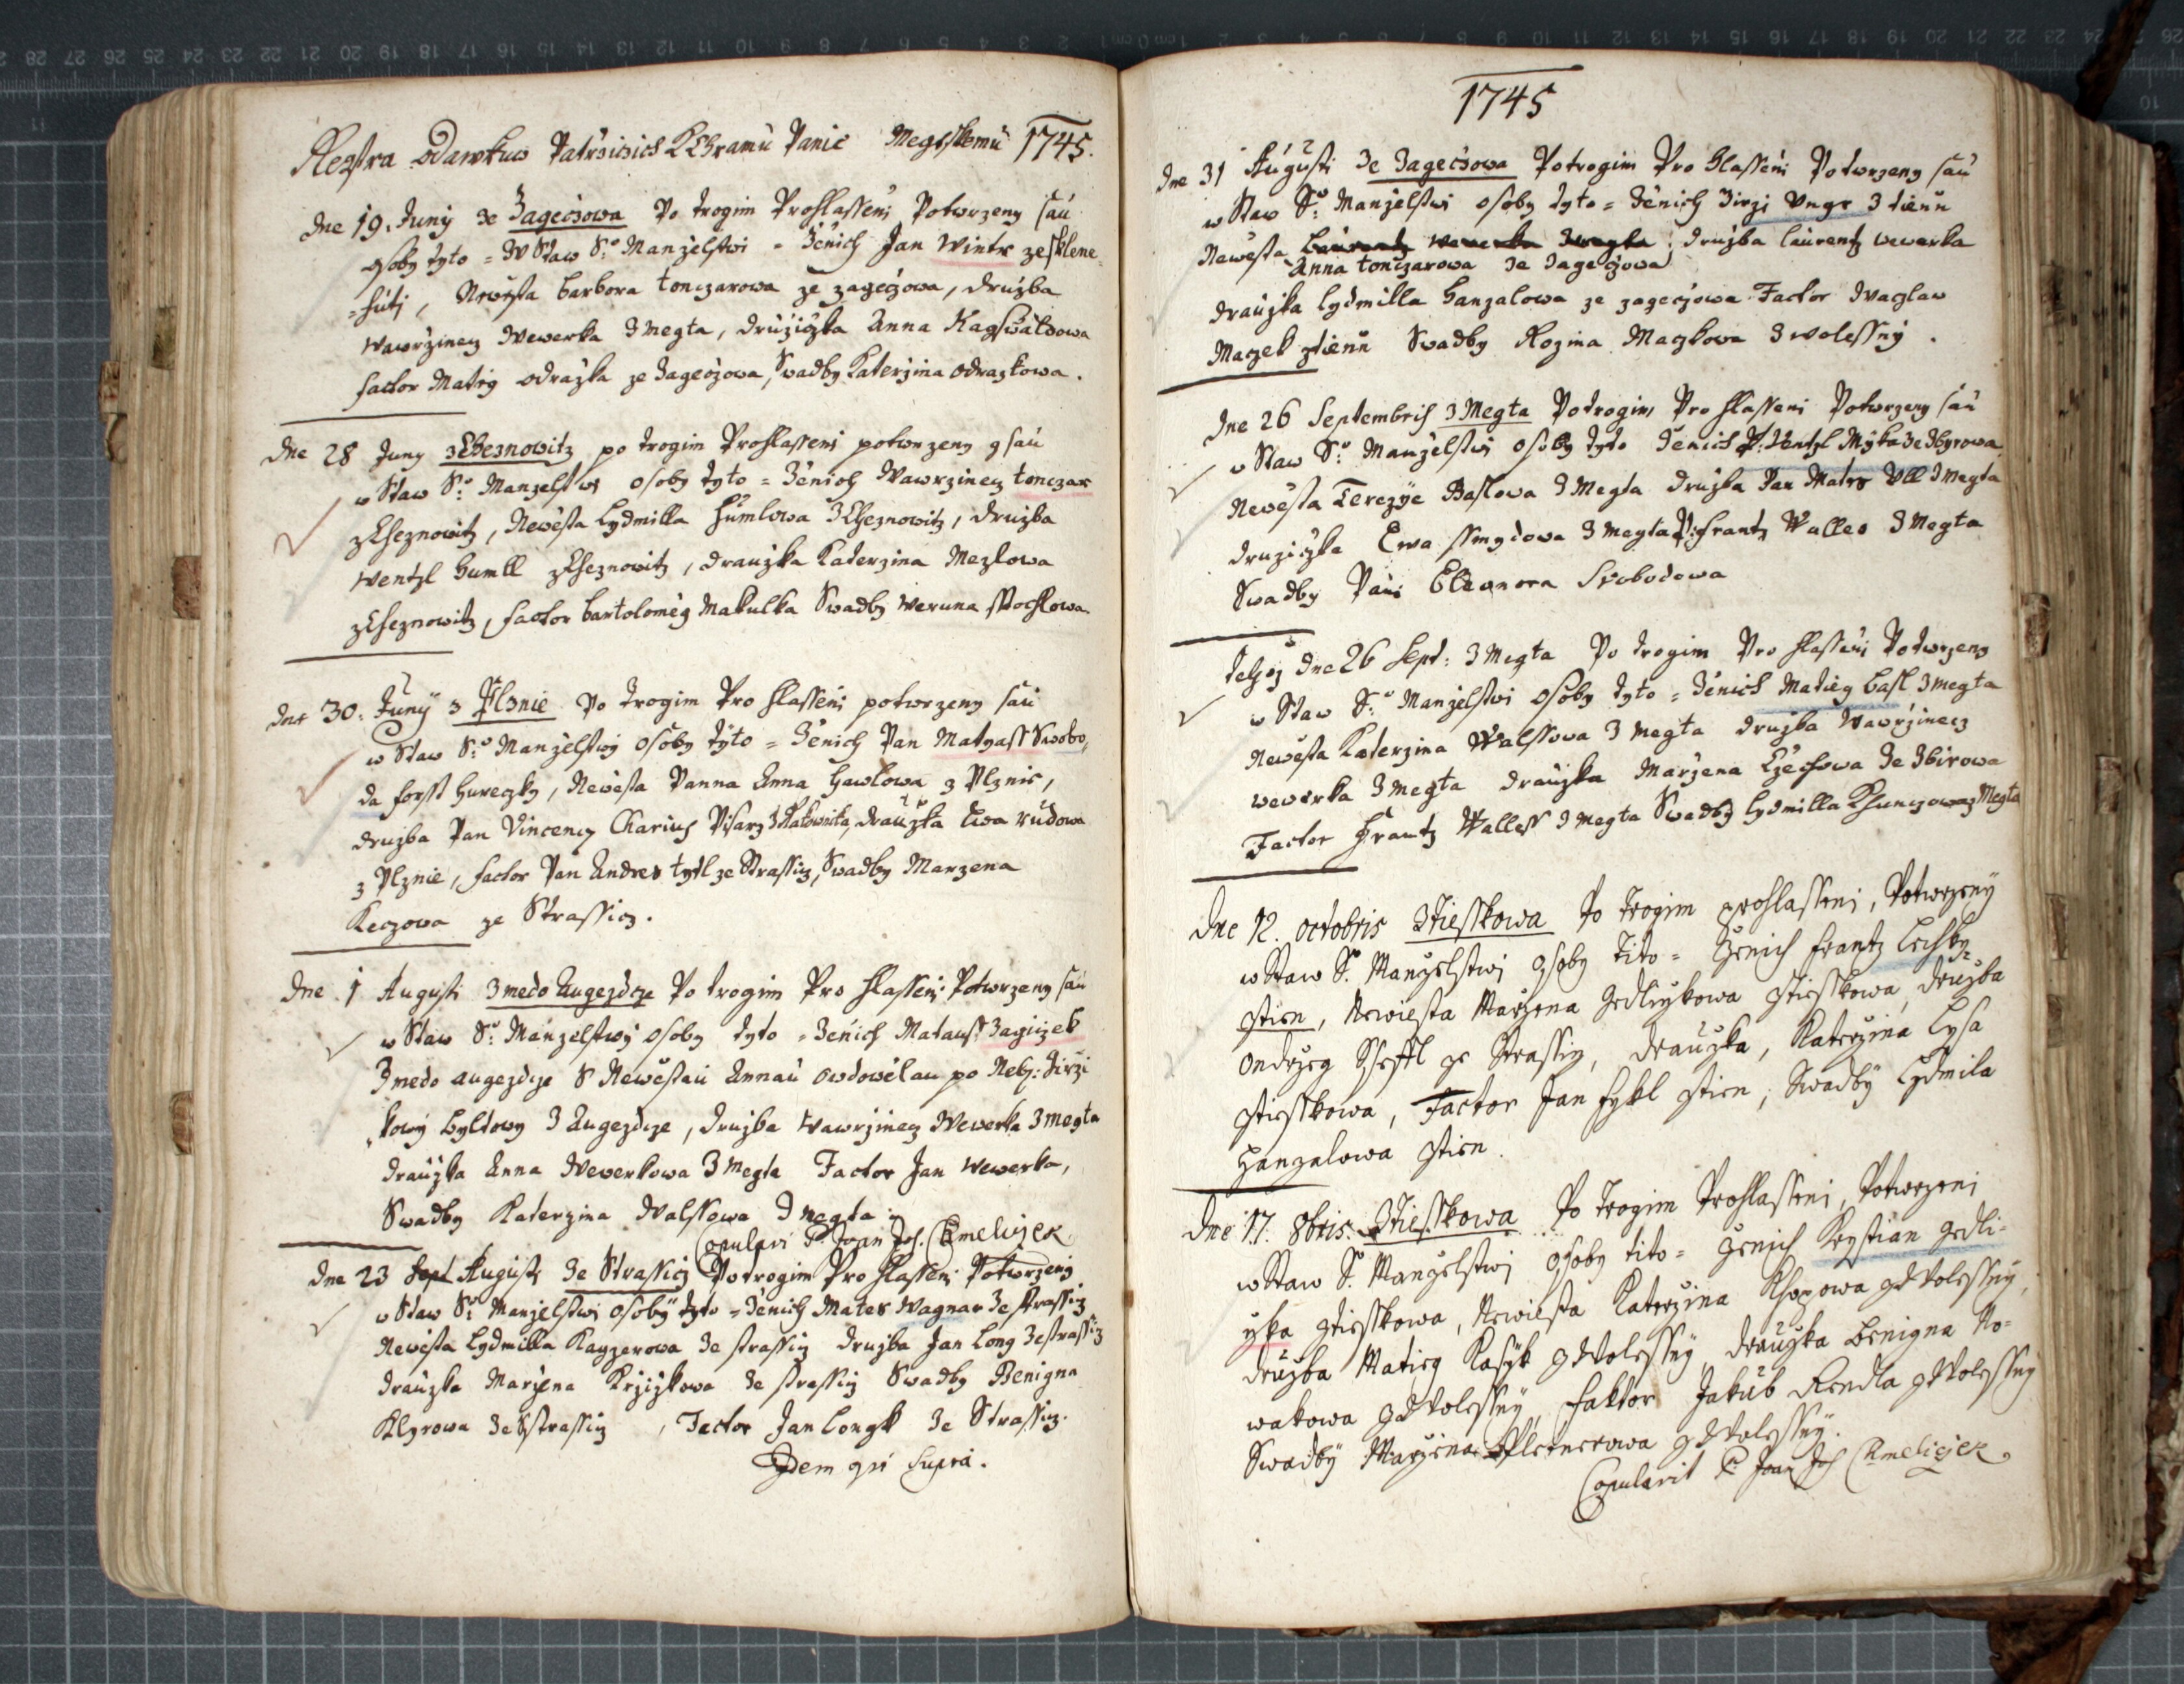 Regstra odawkuw Patrziczich K Chramu Panie Megtskemu 1745.
dne 19. Juny ze Zageczowa Po trogim Prohlasseni Potwrzeny sau
osoby tyto = W Staw S: Manzelstwi = Ženich Jan Wintr ze sklene-
=huti, Newesta barbora tonczarowa ze zageczowa, družba
Wawržinecz Wewerka z Megta, družiczka Anna Kagswaldowa
factor Matieg odrazka ze Zageczowa, Swadby Katerzina odrazkowa.
dne 28 Juny z Cheznowitz po trogim Prohlasseni potwrzeny gsau
w Staw S: Manzelstwi osoby tyto = Ženich Wawrzinecz tonczar
z Cheznowitz, Newesta Lydmilla Humlowa z Cheznowitz, družba
Wentzl Humll z Cheznowitz, drauzka Katerzina Mezlowa
z Cheznowitz, factor bartolomeg Makulka Swadby Weruna
dne 30. Juny z Plznie Po trogim Pro hlasseni potwrzeny sau
w Staw S: Manželstwy osoby tyto = Ženich Pan Matyass Swobo-
da forsst hureczky, Newesta Panna Anna Hawlowa z Plznie,
družba Pan Vincency Charius Pisarz z Rakownika, drauzka Ewa rudowa
z Plznie, factor Pan Andres tytl ze Strassicz, Swadby Marzena
Keczowa ze Strassicz.
dne 1 Augusti z medo Augezdcze Po trogim Pro hlasseni Potwrzeny sau
w Staw S: Manzelstwy osoby tyto = Ženich Matauss Zagiczek
z medo augezdcze S Newestau Annau owdowělau po Neb: Jirzi
kowy byltowy z Augezdcze, družba Wawrzinecz Wewerka z megta
drauzka Anna Wewerkowa z Megta Factor Jan Wewerka,
Swadby Katerzina Walssowa z megta
Copulavi P. Joan Jos. Chmeliczek
dne 23 Sept Augusti ze Strassicz Po trogim Pro hlasseni Potwrzeny
w Staw S: Manželstwi osoby tyto = Ženich Mates Wagnar ze strassicz
Newesta Lydmilla Kayzerowa ze strassicz družba Jan Long ze strassicz
drauzka Maržena Kržižkowa ze strassicz Swadby Benigna
Klyrowa ze Sstrassicz, Factor Jan Longk ze Strassicz.
Idem qui Supra.
1745
dne 31 Augusti ze Zageczowa Po trogim Pro hlasseni Potwrzeny sau
w Staw S: Manželstwi osoby tyto = Ženich Jirzi Ungr z tienu
Newesta Laurentz Wewerka z megta; družba laurentz wewerka
Anna tonczarowa ze Zageczowa
drauzka lydmilla hanzalowa ze zageczowa Factor Waczlaw
Maczek z tienu Swadby Rozina Maczkowa z wolessny.
dne 26 Septembris z Megta Po trogim Pro hlasseni Potwrzeny sau
w Staw S: Manželstwi osoby tyto Ženich P: Wentzl Myka ze dbyrowa
Newesta Terezye Baslowa z Megta družba Pan Mates Ull z Megta
družiczka Ewa z megta P: frantz Walles z Megta
Swadby Pani Eleonora Swobodowa
Tehož dne 26 Sept: z Megta Po trogim Pro hlasseni Potwrzeny
w Staw S: Manželstwi osoby tyto = Ženich Matieg basl z megta
Newesta Katerzina Walssowa z Megta družba Wawržinecz
wewerka z Megta drauzka Maržena Czechowa ze Zbirowa
Factor Frantz Walless z Megta Swadby Lydmilla z Megta
dne 12. octobris z Tiesskowa Po trogim prohlasseni, Potwrzeny
w Staw S. Manzelstwi osoby Tito = Ženich frantz Lechky
z tien, Newiesta Maržena Jedliczkowa z tiesskowa, družba
Ondržeg Sseffl ze Strassicz, drauzka, Katerzina Lysa
z tiesskowa, Factor Jan fykl z tien, Swadby Lydmila
Hanzalowa z tien.
dne 17. 8bris. z Tiesskowa Po trogim Prohlasseni, Potwrzeni
w Staw S. Manzelstwi osoby tito = Ženich Krystian Jedli=
czka z tiesskowa, Newiesta Katerzina Khopowa z Wolessny,
družba Matieg Kasyk z Wolessny, drauzka Benigna No=
wakowa z Wolessny, faktor Jakub Rendla z Wolessny
Swadby Maržena Plenerowa z Wolessny.
Copulavit P. Joan Jos Chmeliczek.